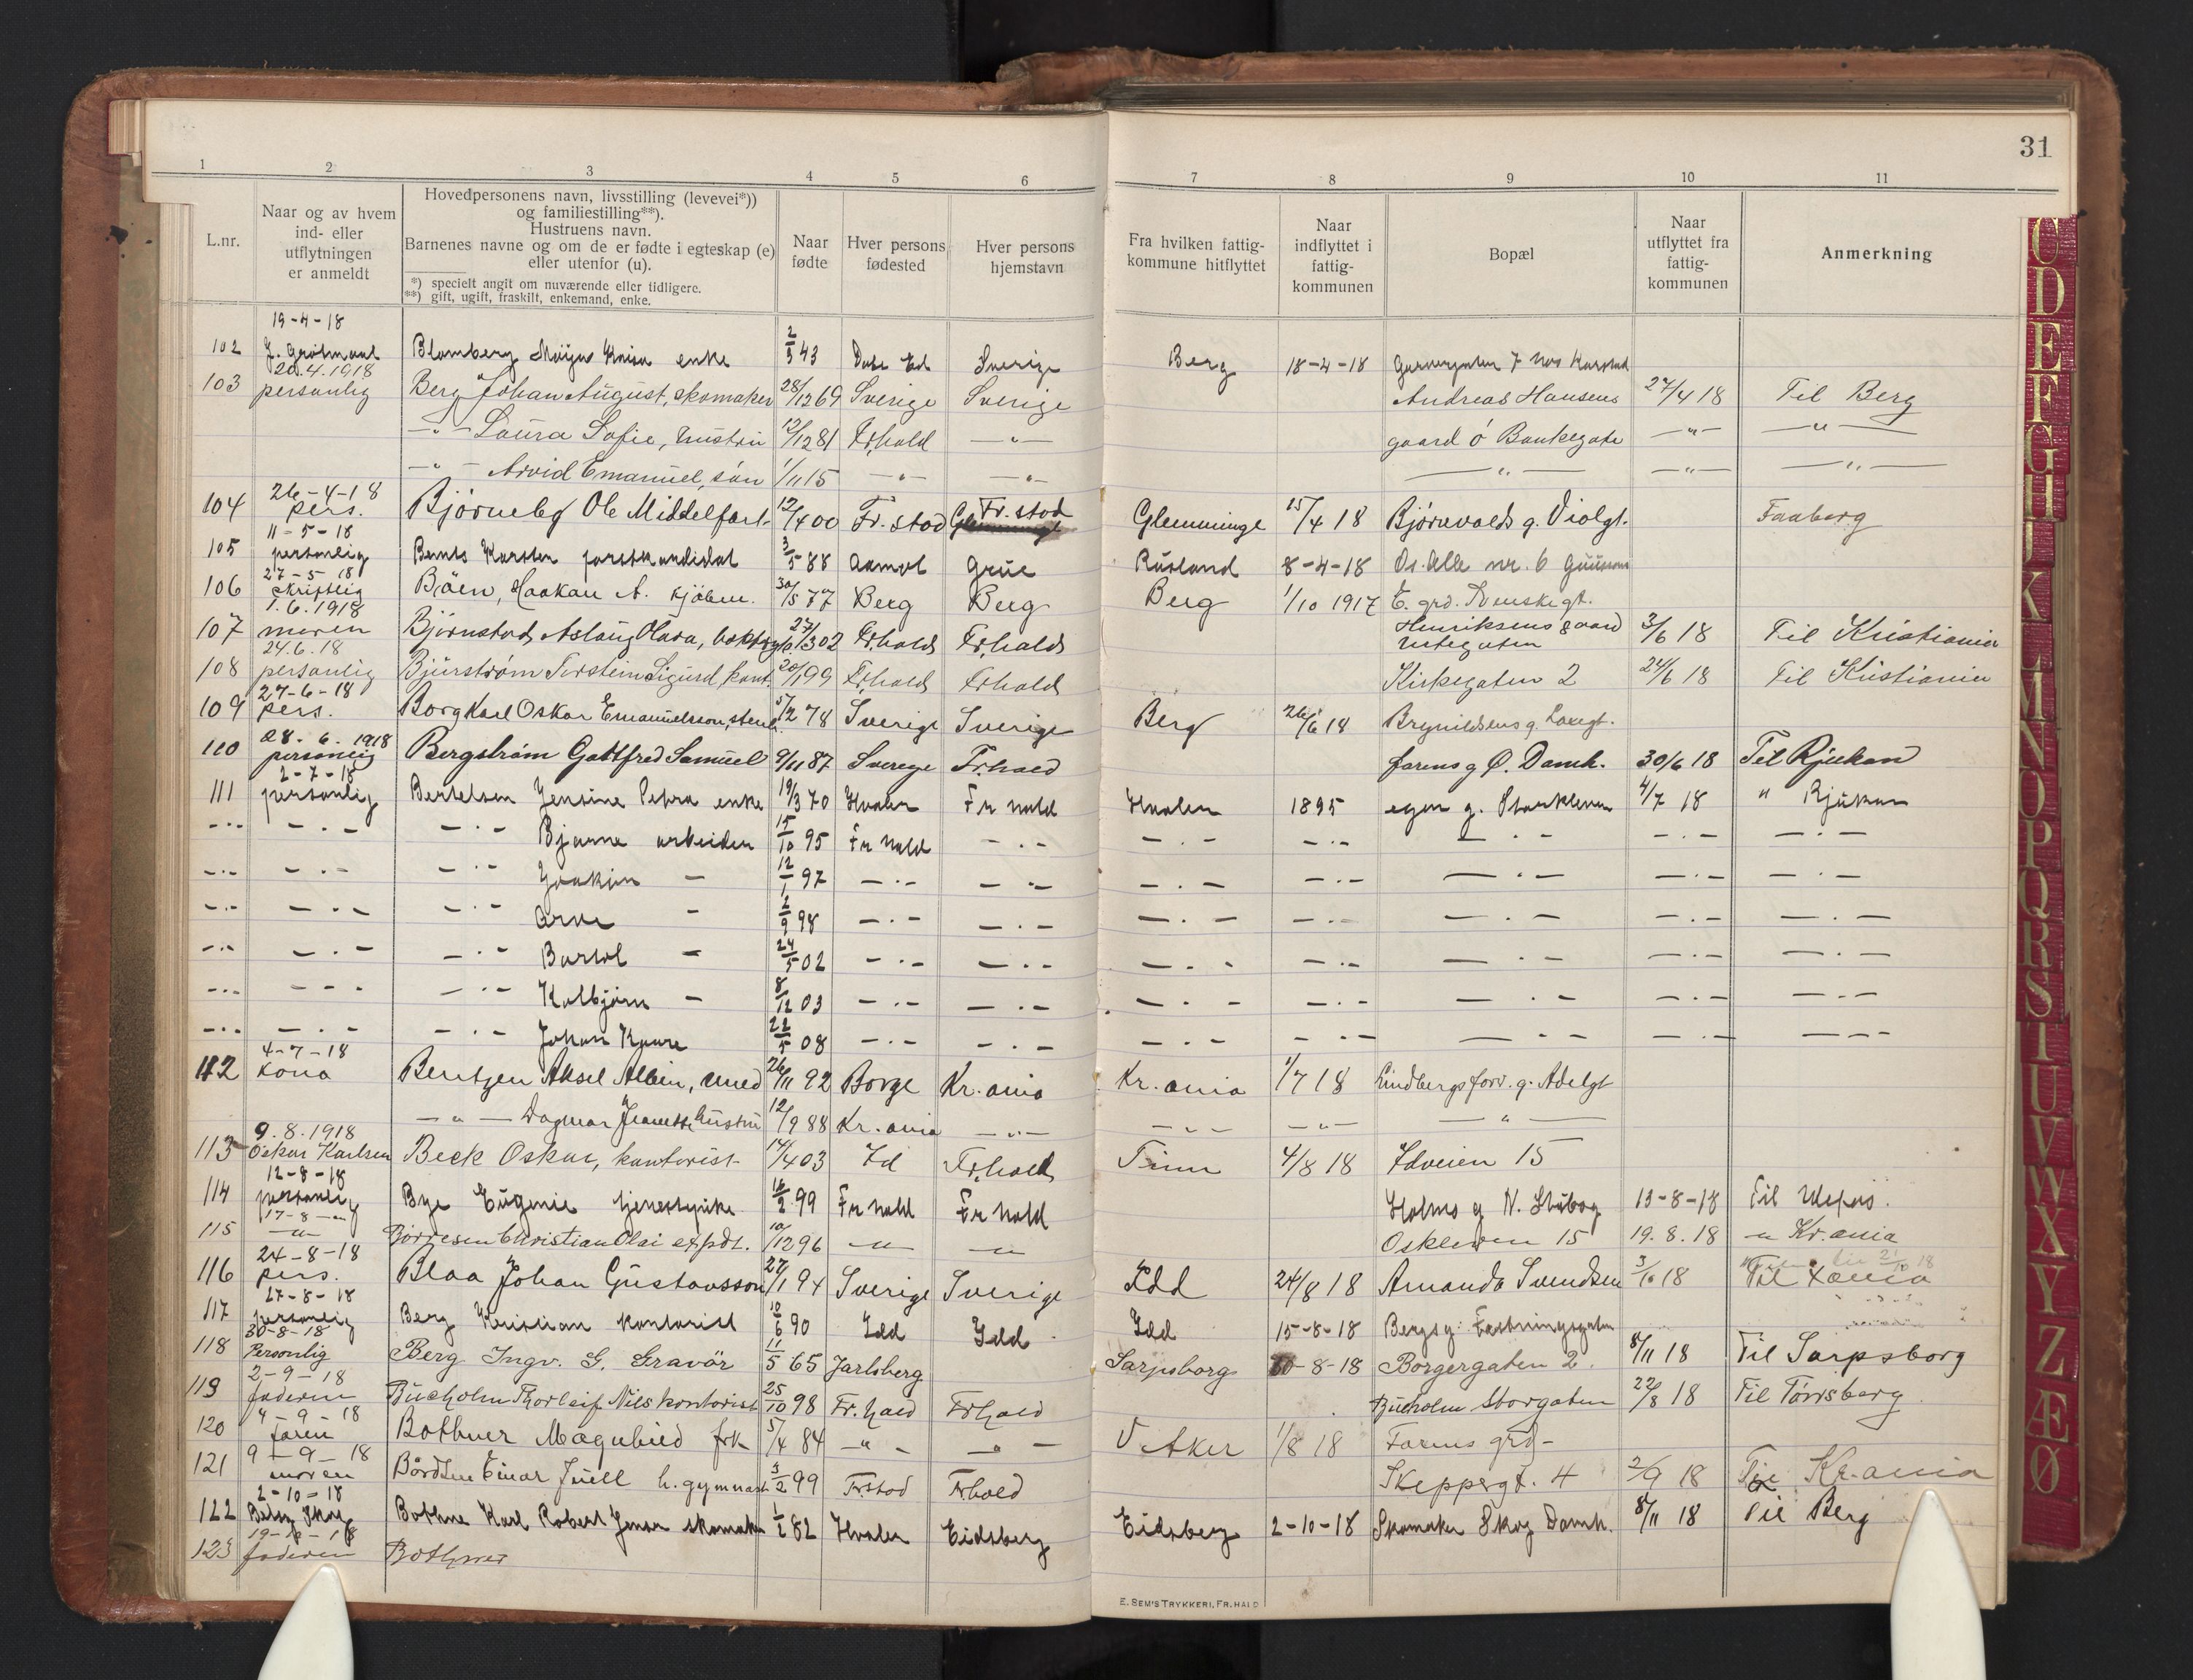 31
1 2 3 4 5 6 7 8 9 10 11
L.nr.
Naar og av hvem
ind- eller
utflytningen
er anmeldt
Hovedpersonens navn, livsstilling (levevei*))
og familiestilling**).
Hustruens navn.
Barnenes navne og om de er fødte i egteskap (e)
eller utenfor (u).
*) specielt angit om nuværende eller tidligere.
**) gift, ugift, fraskilt, enkemand, enke.
Naar
fødte
Hver persons
fødested
Hver persons
hjemstavn
Fra hvilken fattig-
kommune hitflyttet
Naar
indflyttet i
fattig-
kommunen
Bopæl
Naar
utflyttet fra
fattig-
kommunen
Anmerkning
19-4-18
102 Blomberg Maija Kaisa enke 2/3 43 Sverige Berg 18-4-18
20.4.1918
103 personlig Berg Johan August, skomaker 28/12 69 Sverige Sverige Andreas Hansens 27/4 18 Til Berg
-"- Laura Sofie, hustru 12/12 81 Frhald -"- gaard Ø Bankegate -"- -"-
-"- Arvid Emanuel, søn 1/11 15 -"- -"- -"- -"- -"-
26-4-18
104 pers. Bjørneby Ole Middelfart 12/4 00 Fr.stad Fr.stad Glemminge 15/4 18 Bjørevolds g. Violgt. Faaberg
11-5-18
105 personlig Bents Karsten forstkandidat 3/5 88 Aamot Grue Rusland 8-4-18 Os. Alle nr. 6
27-5-18
106 skriftlig Bøen, Haakan A. kjøbm. 30/5 77 Berg Berg Berg 1/10 1917 E. grd. Svenskegt.
1.6.1918
107 moren Bjørnstad, Aslaug Olava, 27/3 02 Fr.hald Fr.hald Henriksens gaard 3/6 18 Til Kristiania
24.6.18
108 personlig Bjurstrøm Torstein Sigurd, kont. 20/1 99 Frhald Frhald Kirkegaten 2 24/6 18 Til Kristiania
27-6-18
109 pers. Borg Karl Oskar Emanuelsson, stenh. 5/2 78 Sverige Sverige Berg 26/6 18 Brynildsens g.
28.6.1918
110 personlig Bergstrøm Gottfred Samuel 9/11 87 Sverege Fr.hald Farens g Ø. Damh. 30/6 18 Til Rjukan
2-7-18
111 personlig Bertelsen Jensine Petra enke 19/3 70 Hvaler Fr hald Hvaler 1895 egen g. 4/7 18 " Rjukan
-"- -"- -"- Bjarne arbeider 15/10 95 Fr hald -"- -"- -"- -"- -"- -"-
-"- -"- -"- Joakim - 12/1 97 -"- -"- -"- -"- -"- -"- -"-
-"- -"- -"- Arne - 2/9 98 -"- -"- -"- -"- -"- -"- -"-
-"- -"- -"- Bartol - 24/5 02 -"- -"- -"- -"- -"- -"- -"-
-"- -"- -"- Kolbjørn - 8/12 03 -"- -"- -"- -"- -"- -"- -"-
-"- -"- -"- Johan Kaare 22/5 08 -"- -"- -"- -"- -"- -"- -"-
4-7-18
112 kona Bentzen Aksel Albin, 26/11 92 Borge Kr.ania Kr.ania 1/7 18 Lindbergs forr. g. Adelgt
-"- Dagmar Jeanette hustru 12/9 88 Kr.ania -"- -"- -"- -"-
9.8.1918
113 Oskar Karlsen Beck Oskar, kontorist 14/4 03 Id Fr.hald Tinn 4/8 18 Idveien 15
12-8-18
114 personlig Bye Eugenie tjenestpike 16/2 99 Fr hald Fr hald Holms g N. 13-8-18 Til Ulefos.
17-8-"
115 -"- Børresen Christian Olai expdt. 10/12 96 -"- -"- Oskleven 15 19.8.18 -"- Kr.ania
24-8-18
116 pers. Blaa Johan Gustavsson 27/1 94 Sverige Sverige Idd 24/8 18 Amanda Svendsen 3/10 18 Til Kania
27-8-18
117 personlig Berg Kristian kontorist 10/6 90 Idd Idd Idd 15-8-18 Bergs g: Fæstningsgaten
30-8-18
118 Personlig Berg Ingv. G. Gravør 11/5 65 Jarlsberg Sarpsborg 10-8-18 Borgergaten 2. 8/11 18 Til Sarpsborg
2-9-18
119 faderen Bucholm Thorleif Nils kontorist 25/10 98 Fr.hald Frhald Bucholm Storgaten 22/8 18 Til Tønsberg
4-9-18
120 faren Bothner Magnhild frk 5/4 84 -"- -"- V Aker 1/8 18 Farens grd-
9-9-18
121 moren Bårdsen Einar Juell h. gymnast 3/2 99 Frstad Frhald Skeppergt. 4 2/9 18 Til Kr.ania
2-10-18
122 Betzy Skog Bothne Karl Robert skomaker 1/2 82 Hvaler Eidsberg Eidsberg 2-10-18 Skomaker Skog Damh. 8/11 18 Til Berg
123 faderen Bothner
E. SEM'S TRYKKERI, FR.HALD
C D E F G H J K L M N O P Q R S T U V W X Y Z Æ Ø